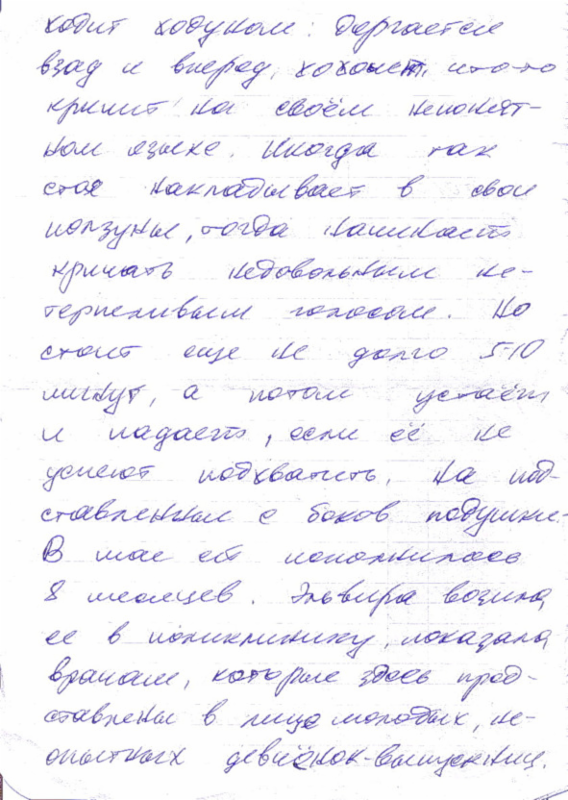 ходит ходуном: дергается
взад и вперед, хохочет, что-то
кричит на своём непонят-
ном языке. Иногда так
стоя накладывает в свои
ползуны, тогда начинает
кричать недовольным не-
терпеливым голосом. Но
стоит еще не долго 5-10
минут, а потом устаёт
и падает, если её не
успеют подхватить. На под-
ставленные с боков подушки.
В мае ей исполнилось
8 месяцев. Эльвира возила
ее в поликлинику, показала
врачам, которые здесь пред-
ставлены в лице молодых, не-
опытных девчёнок-выпускниц.